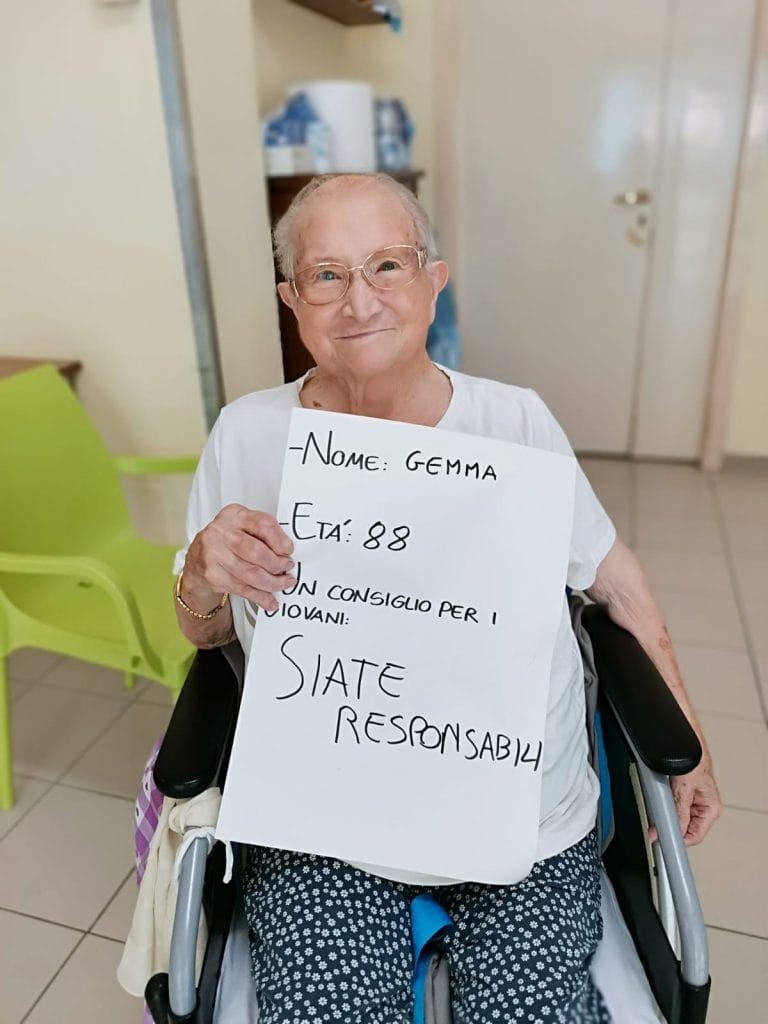 -NOME: GEMMA
-ETÁ: 88
UN CONSIGLIO PER I
GIOVANI:
SIATE
RESPONSABILI